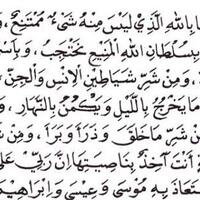 بِاللهِ الَّذِي لَيْسَ مِنْهُ شَيْءٌ مُمْتَنِعٌ
بِسُلْطَانِ اللهِ الْمَنِيْعِ نَحْتَجِبُ ، وَبِأَسْ
، وَمِنْ شَرِّ شَيَاطِيْنِ الْإِنْسِ وَالْجِنِّ
مَا يَخْرُجُ بِاللَّيْلِ وَيَكْمُنُ بِالنَّهَارِ
نْ شَرِّ مَا خَلَقَ وَذَرَأَ وَبَرَأَ ، وَمِنْ
أَنْتَ آخِذٌ بِنَاصِيَتِهَا إِنَّ رَبِّيْ عَلَى
سْتَعَاذَ بِهِ مُوْسَى وَعِيْسَى وَإِبْرَاهِيْمَ